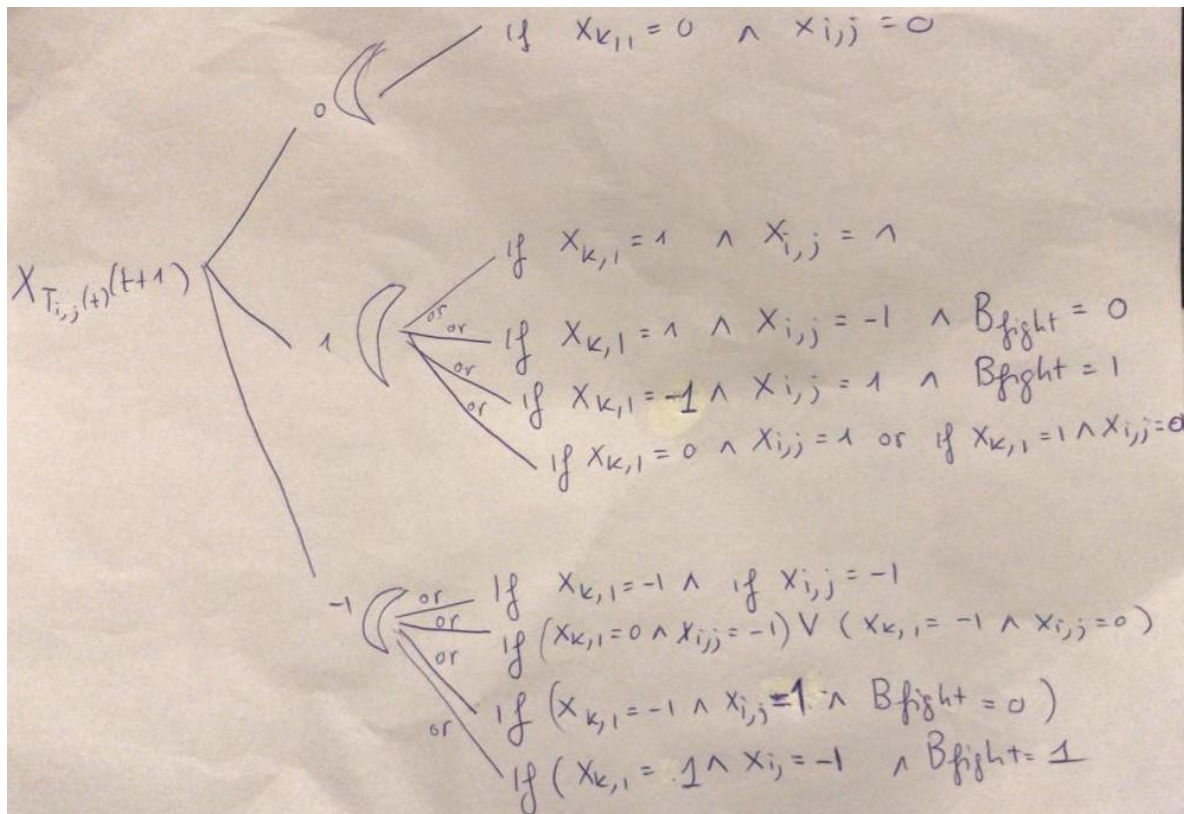 0 if X_{k,l} = 0 ∧ X_{i,j} = 0
X_{T_{i,j}(t)}(t+1)
1
or if X_{k,l} = 1 ∧ X_{i,j} = 1
or if X_{k,l} = 1 ∧ X_{i,j} = -1 ∧ B_{fight} = 0
or if X_{k,l} = -1 ∧ X_{i,j} = 1 ∧ B_{fight} = 1
or if X_{k,l} = 0 ∧ X_{i,j} = 1 or if X_{k,l} = 1 ∧ X_{i,j} = 0
-1
or If X_{k,l} = -1 ∧ if X_{i,j} = -1
or if (X_{k,l} = 0 ∧ X_{i,j} = -1) ∨ (X_{k,l} = -1 ∧ X_{i,j} = 0)
or if (X_{k,l} = -1 ∧ X_{i,j} = 1 ∧ B_{fight} = 0)
or If (X_{k,l} = 1 ∧ X_{i,} = -1 ∧ B_{fight} = 1